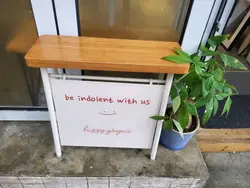 be indolent with us
happy project